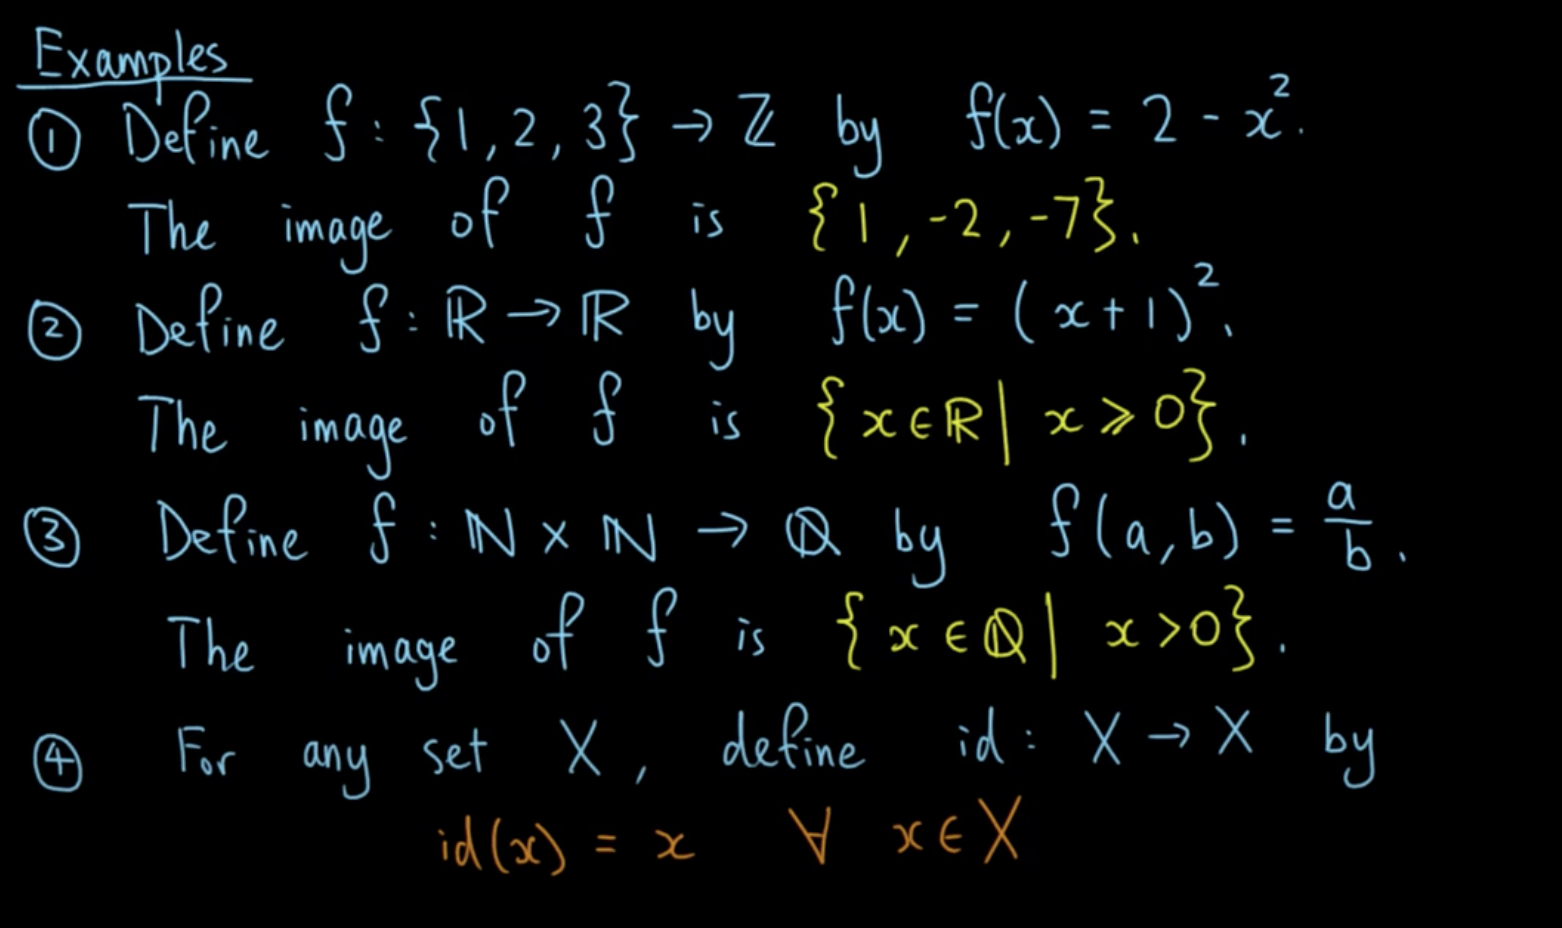 Examples
① Define f : {1, 2, 3} → ℤ by f(x) = 2 - x².
The image of f is {1, -2, -7}.
② Define f : ℝ → ℝ by f(x) = (x + 1)².
The image of f is {x ∈ ℝ | x ⩾ 0}.
③ Define f : ℕ × ℕ → ℚ by f(a, b) = a/b.
The image of f is {x ∈ ℚ | x > 0}.
④ For any set X, define id : X → X by
id(x) = x ∀ x ∈ X